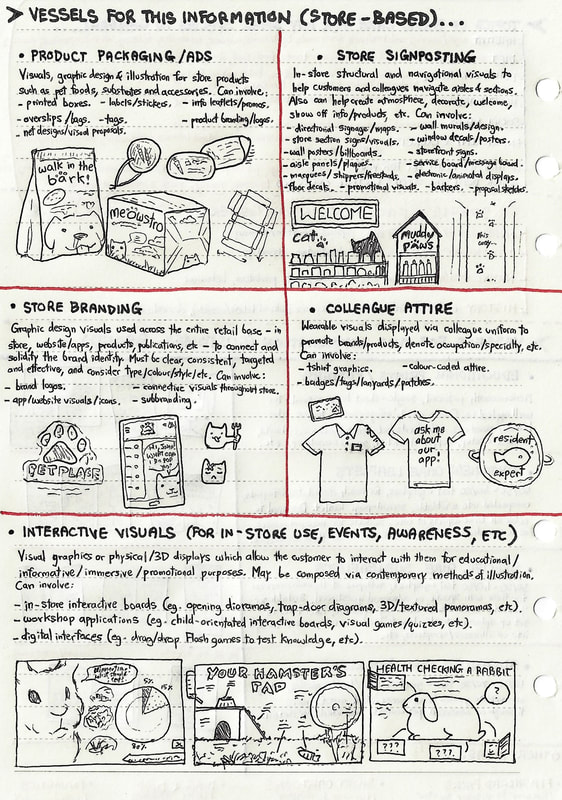 > VESSELS FOR THIS INFORMATION (STORE-BASED)...
• PRODUCT PACKAGING/ADS
Visuals, graphic design & illustration for store products
such as pet foods, substrates and accessories. Can involve:
- printed boxes. - labels/stickers. - info leaflets/promos.
- overslips/bags. - tags. - product branding/logos.
- net designs/visual proposals.
walk in the
bark!
meowstro
• STORE SIGNPOSTING
In-store structural and navigational visuals to
help customers and colleagues navigate aisles & sections.
Also can help create atmosphere, decorate, welcome,
show off info/products, etc. Can involve:
- directional signage/maps. - wall murals/design.
- store section signs/visuals. - window decals/posters.
- wall posters/billboards. - storefront signs.
- aisle panels/plaques. - service board/message board.
- marquees/shippers/freestands. - electronic/animated displays.
- floor decals. - promotional visuals. - barkers. - proposal sketches.
WELCOME
cat
muddy
paws
this
way...
• STORE BRANDING
Graphic design visuals used across the entire retail base - in
store, website/apps, products, publications, etc - to connect and
solidify the brand identity. Must be clear, consistent, targeted
and effective, and consider type/colour/style/etc. Can involve:
- brand logos. - connective visuals throughout store.
- app/website visuals/icons. - subbranding.
PET PLACE
• COLLEAGUE ATTIRE
Wearable visuals displayed via colleague uniform to
promote brands/products, denote occupation/specialty, etc.
Can involve:
- tshirt graphics. - colour-coded attire.
- badges/tags/lanyards/patches.
ask me
about
our
app!
resident
expert
• INTERACTIVE VISUALS (FOR IN-STORE USE, EVENTS, AWARENESS, ETC)
Visual graphics or physical/3D displays which allow the customer to interact with them for educational/
informative/immersive/promotional purposes. May be composed via contemporary methods of illustration.
Can involve:
- in-store interactive boards (eg. opening dioramas, trap-door diagrams, 3D/textured panoramas, etc).
- workshop applications (eg. child-orientated interactive boards, visual games/quizzes, etc).
- digital interfaces (eg. drag/drop Flash games to test knowledge, etc).
5%
15%
80%
YOUR HAMSTER'S
PAD
HEALTH CHECKING A RABBIT
?
???
???